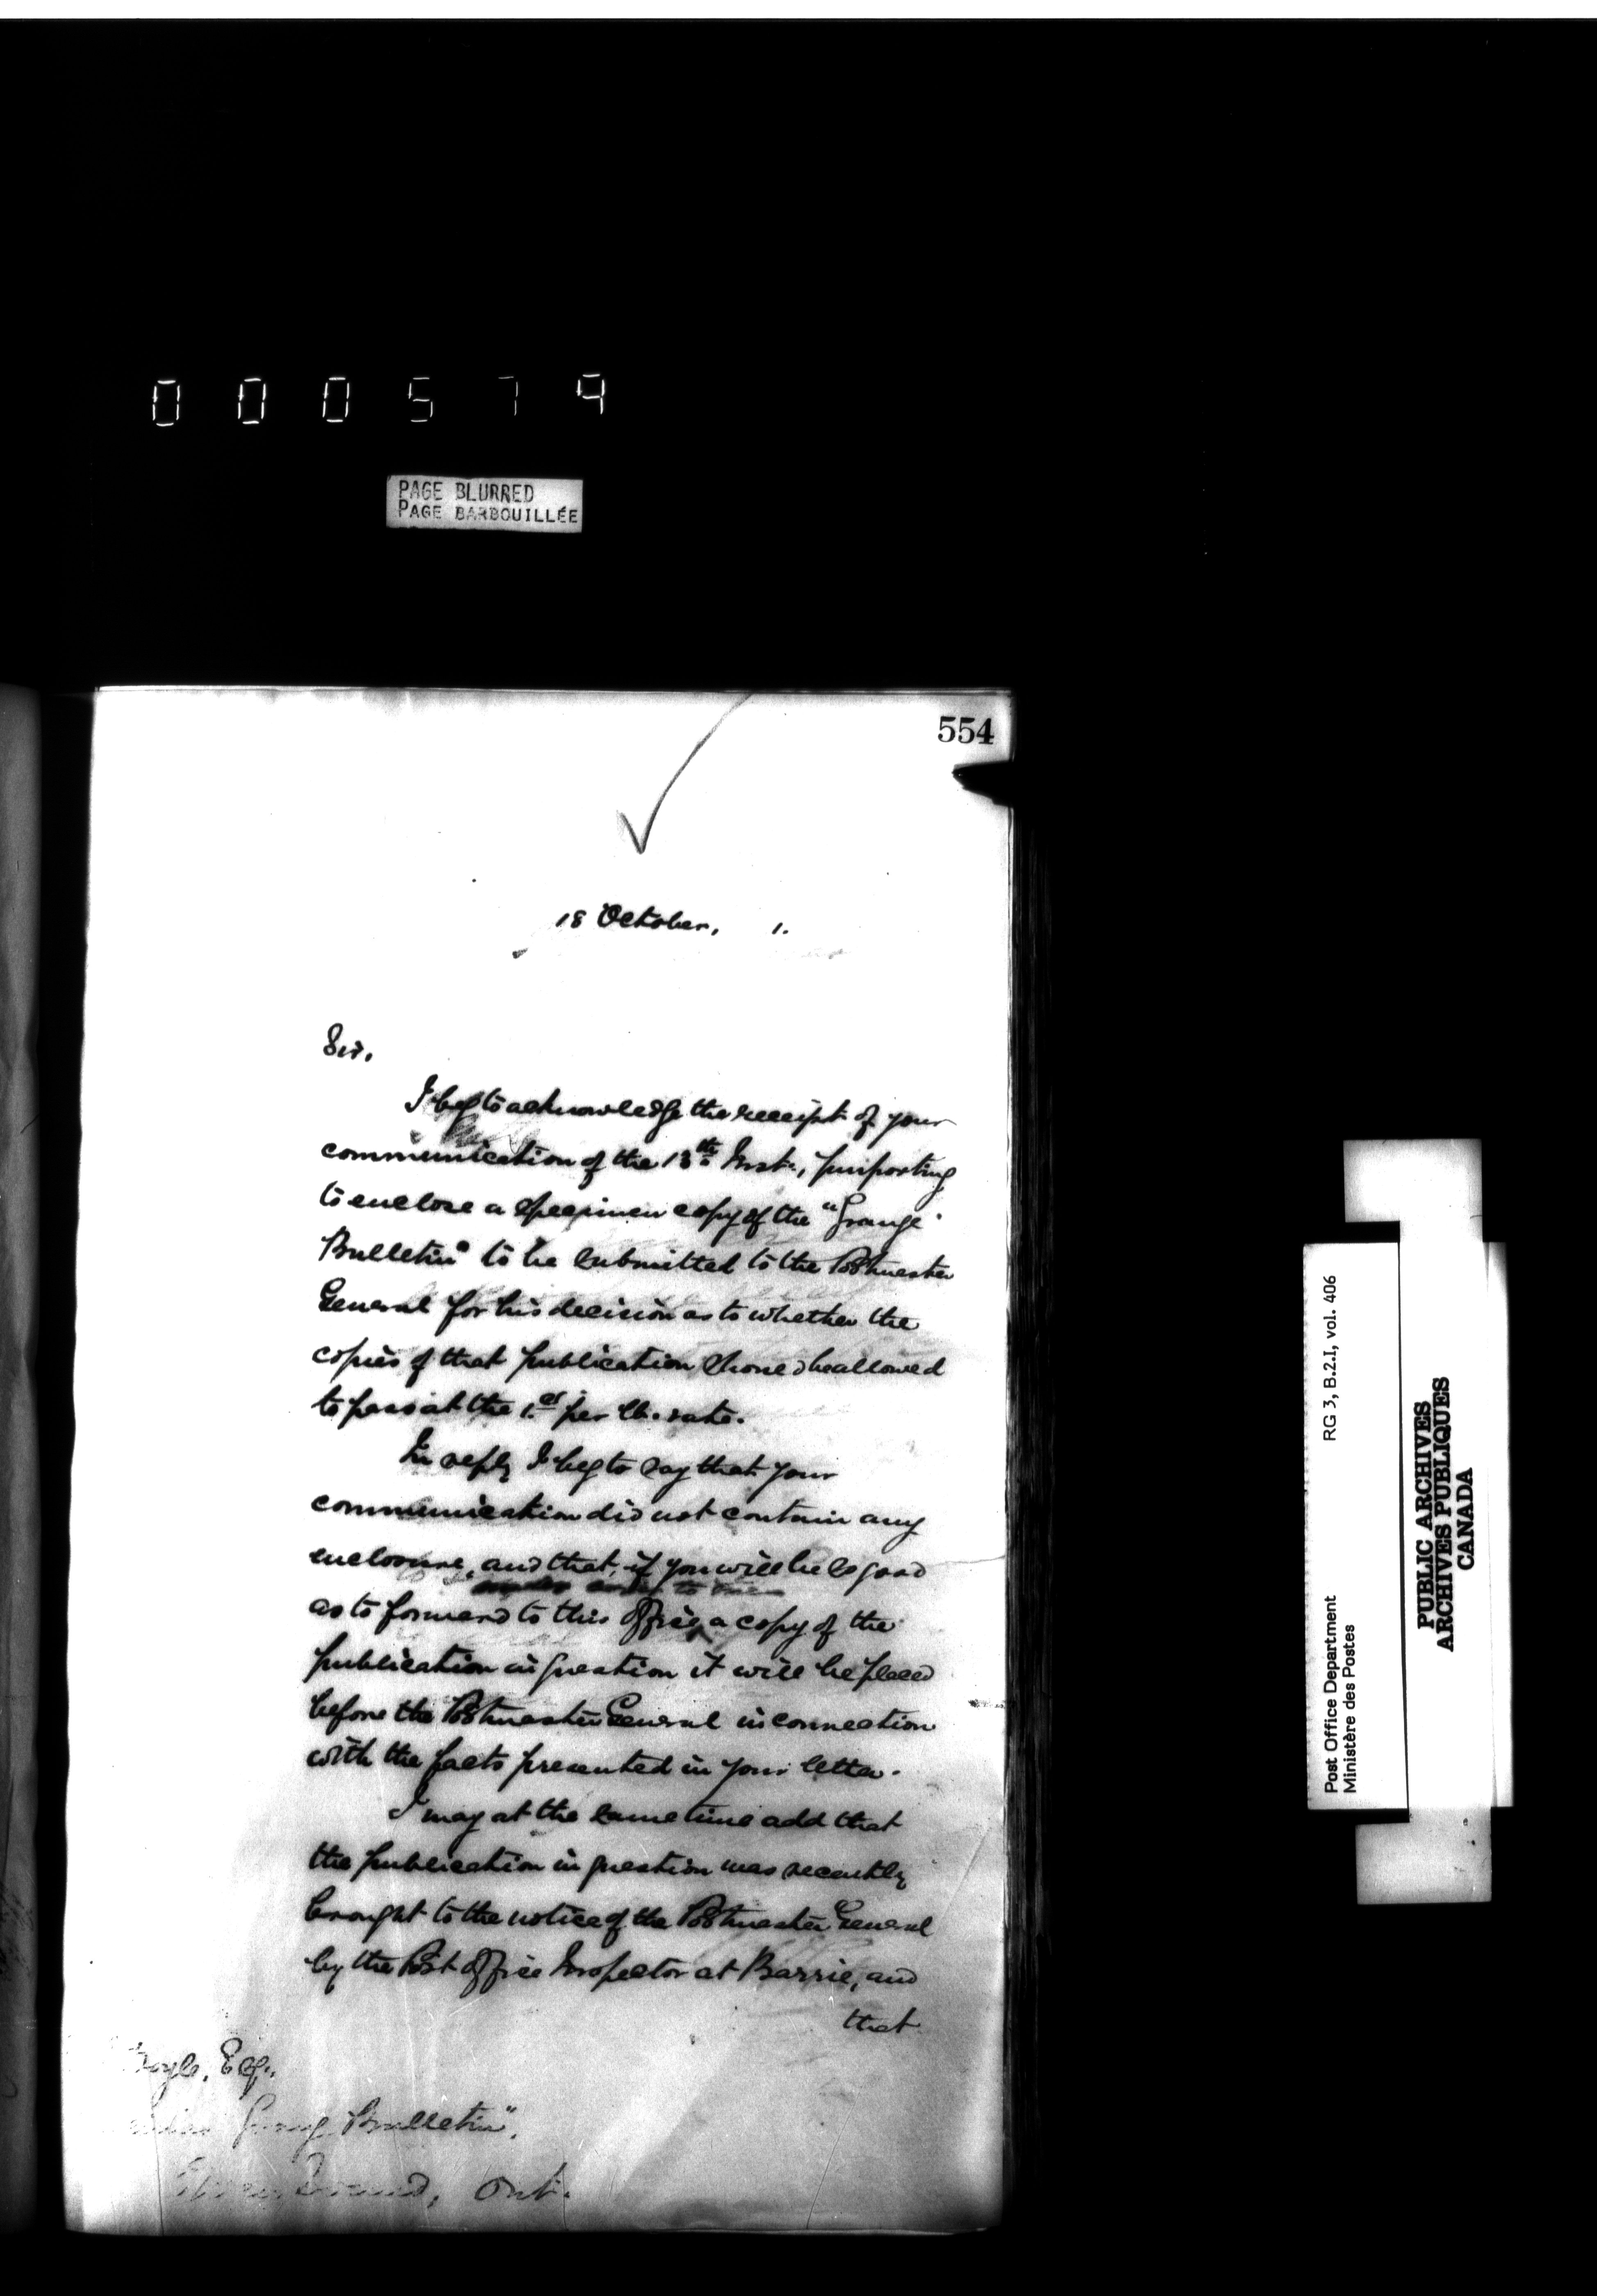 000579
PAGE BLURRED
PAGE BARBOUILLÉE
554
18 October, 1.
Sir,
I beg to acknowledge the receipt of your
communication of the 13th Inst., purporting
to enclose a specimen copy of the "Grange
Bulletin" to be submitted to the Postmaster
General for his decision as to whether the
copies of that publication should be allowed
to pass at the 1.ct per lb. rate.
In reply I beg to say that your
communication did not contain any
enclosure, and that, if you will be so good
as to forward to this Office, a copy of the
publication in question it will be placed
before the Postmaster General in connection
with the facts presented in your letter.
I may at the same time add that
the publication in question was recently
brought to the notice of the Postmaster General
by the Post Office Inspector at Barrie, and
that
Esq.,
Grange Bulletin",
Owen Sound, Ont.
Post Office Department
Ministère des Postes
RG 3, B.2.I, vol. 406
PUBLIC ARCHIVES
ARCHIVES PUBLIQUES
CANADA